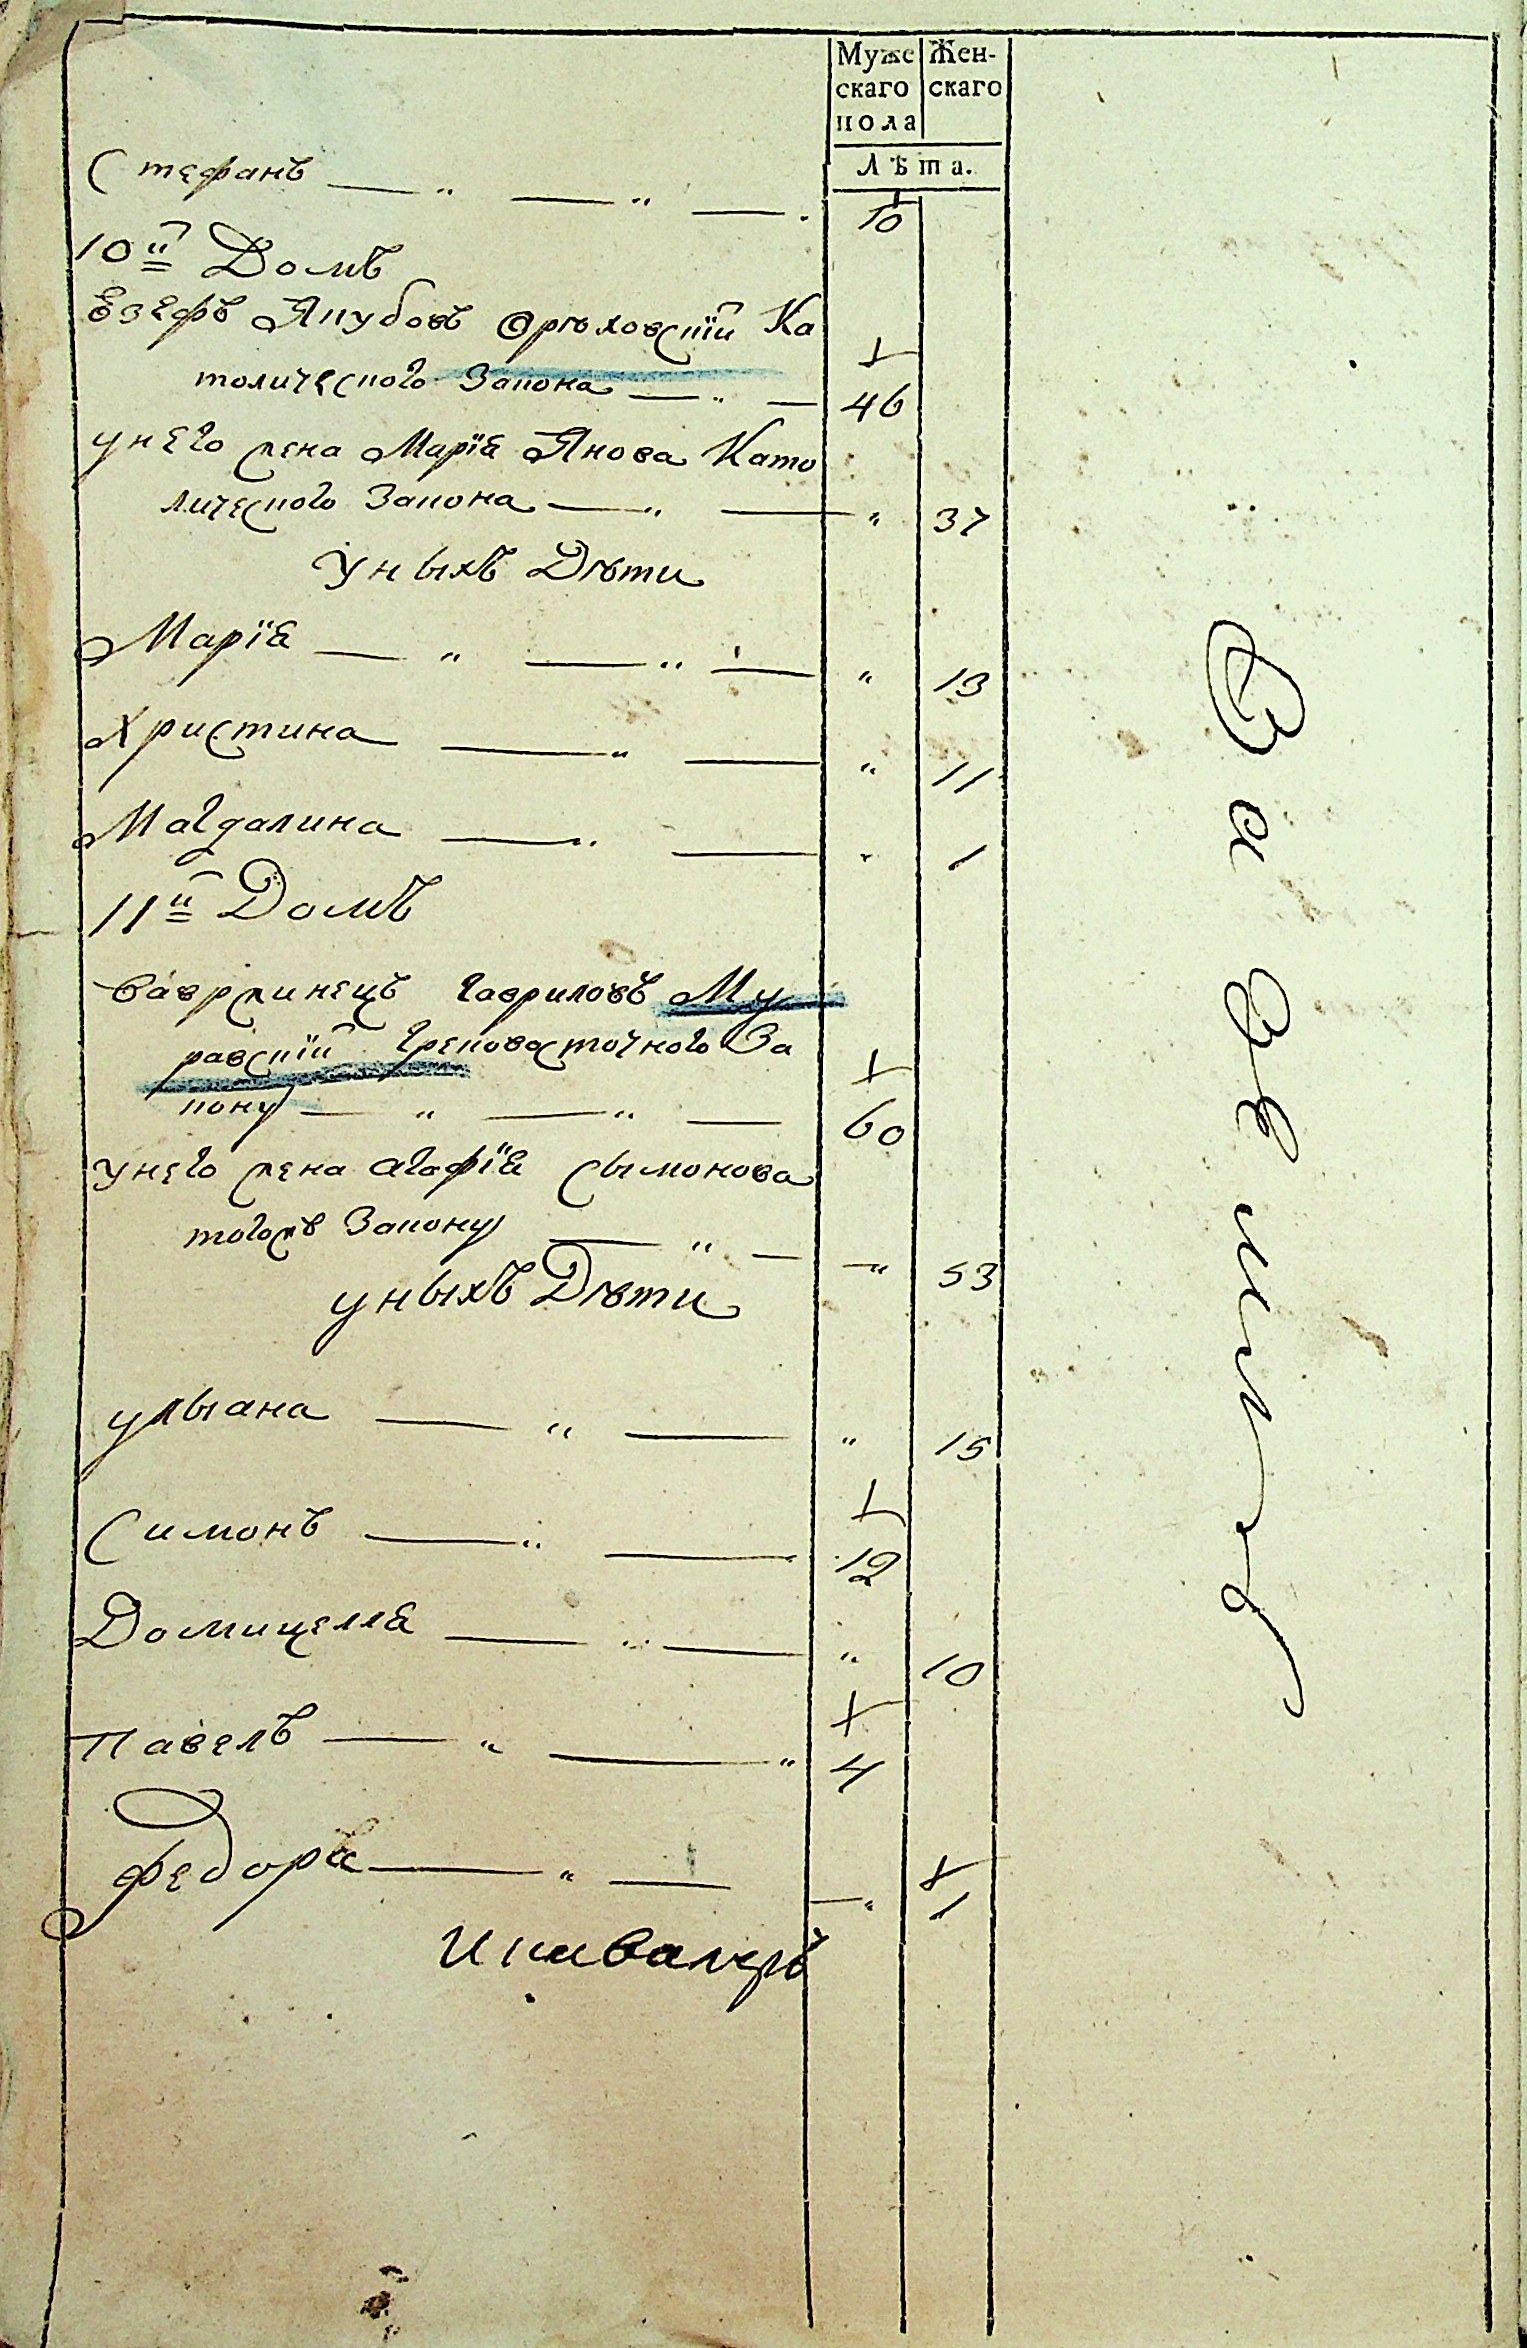 Муже Жен-
скаго скаго
пола
Лѣта.
Стефанъ — „ — „ — . 10
10й Домъ
Езефъ Якубовъ Орѣховскій Ка
толического Закона — „ — 46
унего жена Маріа Янова Като
лического Закона — „ — „ 37
Уныхъ Дѣти
Маріа — „ — „ — „ 13
Христина — „ — „ 11
Магдалина — „ — „ 1
11й Домъ
Вавржинецъ Гавриловъ Му
равскій Грековосточного За
кону — „ — „ — 60
унего жена Агафіа Сымонова
тогожъ Закону — „ — „ 53
уныхъ Дѣти
ульіана — „ — „ 15
Симонъ — „ — 12
Домицелла — „ — „ 10
Павелъ — „ — „ 4
Федора — „ — „ 1